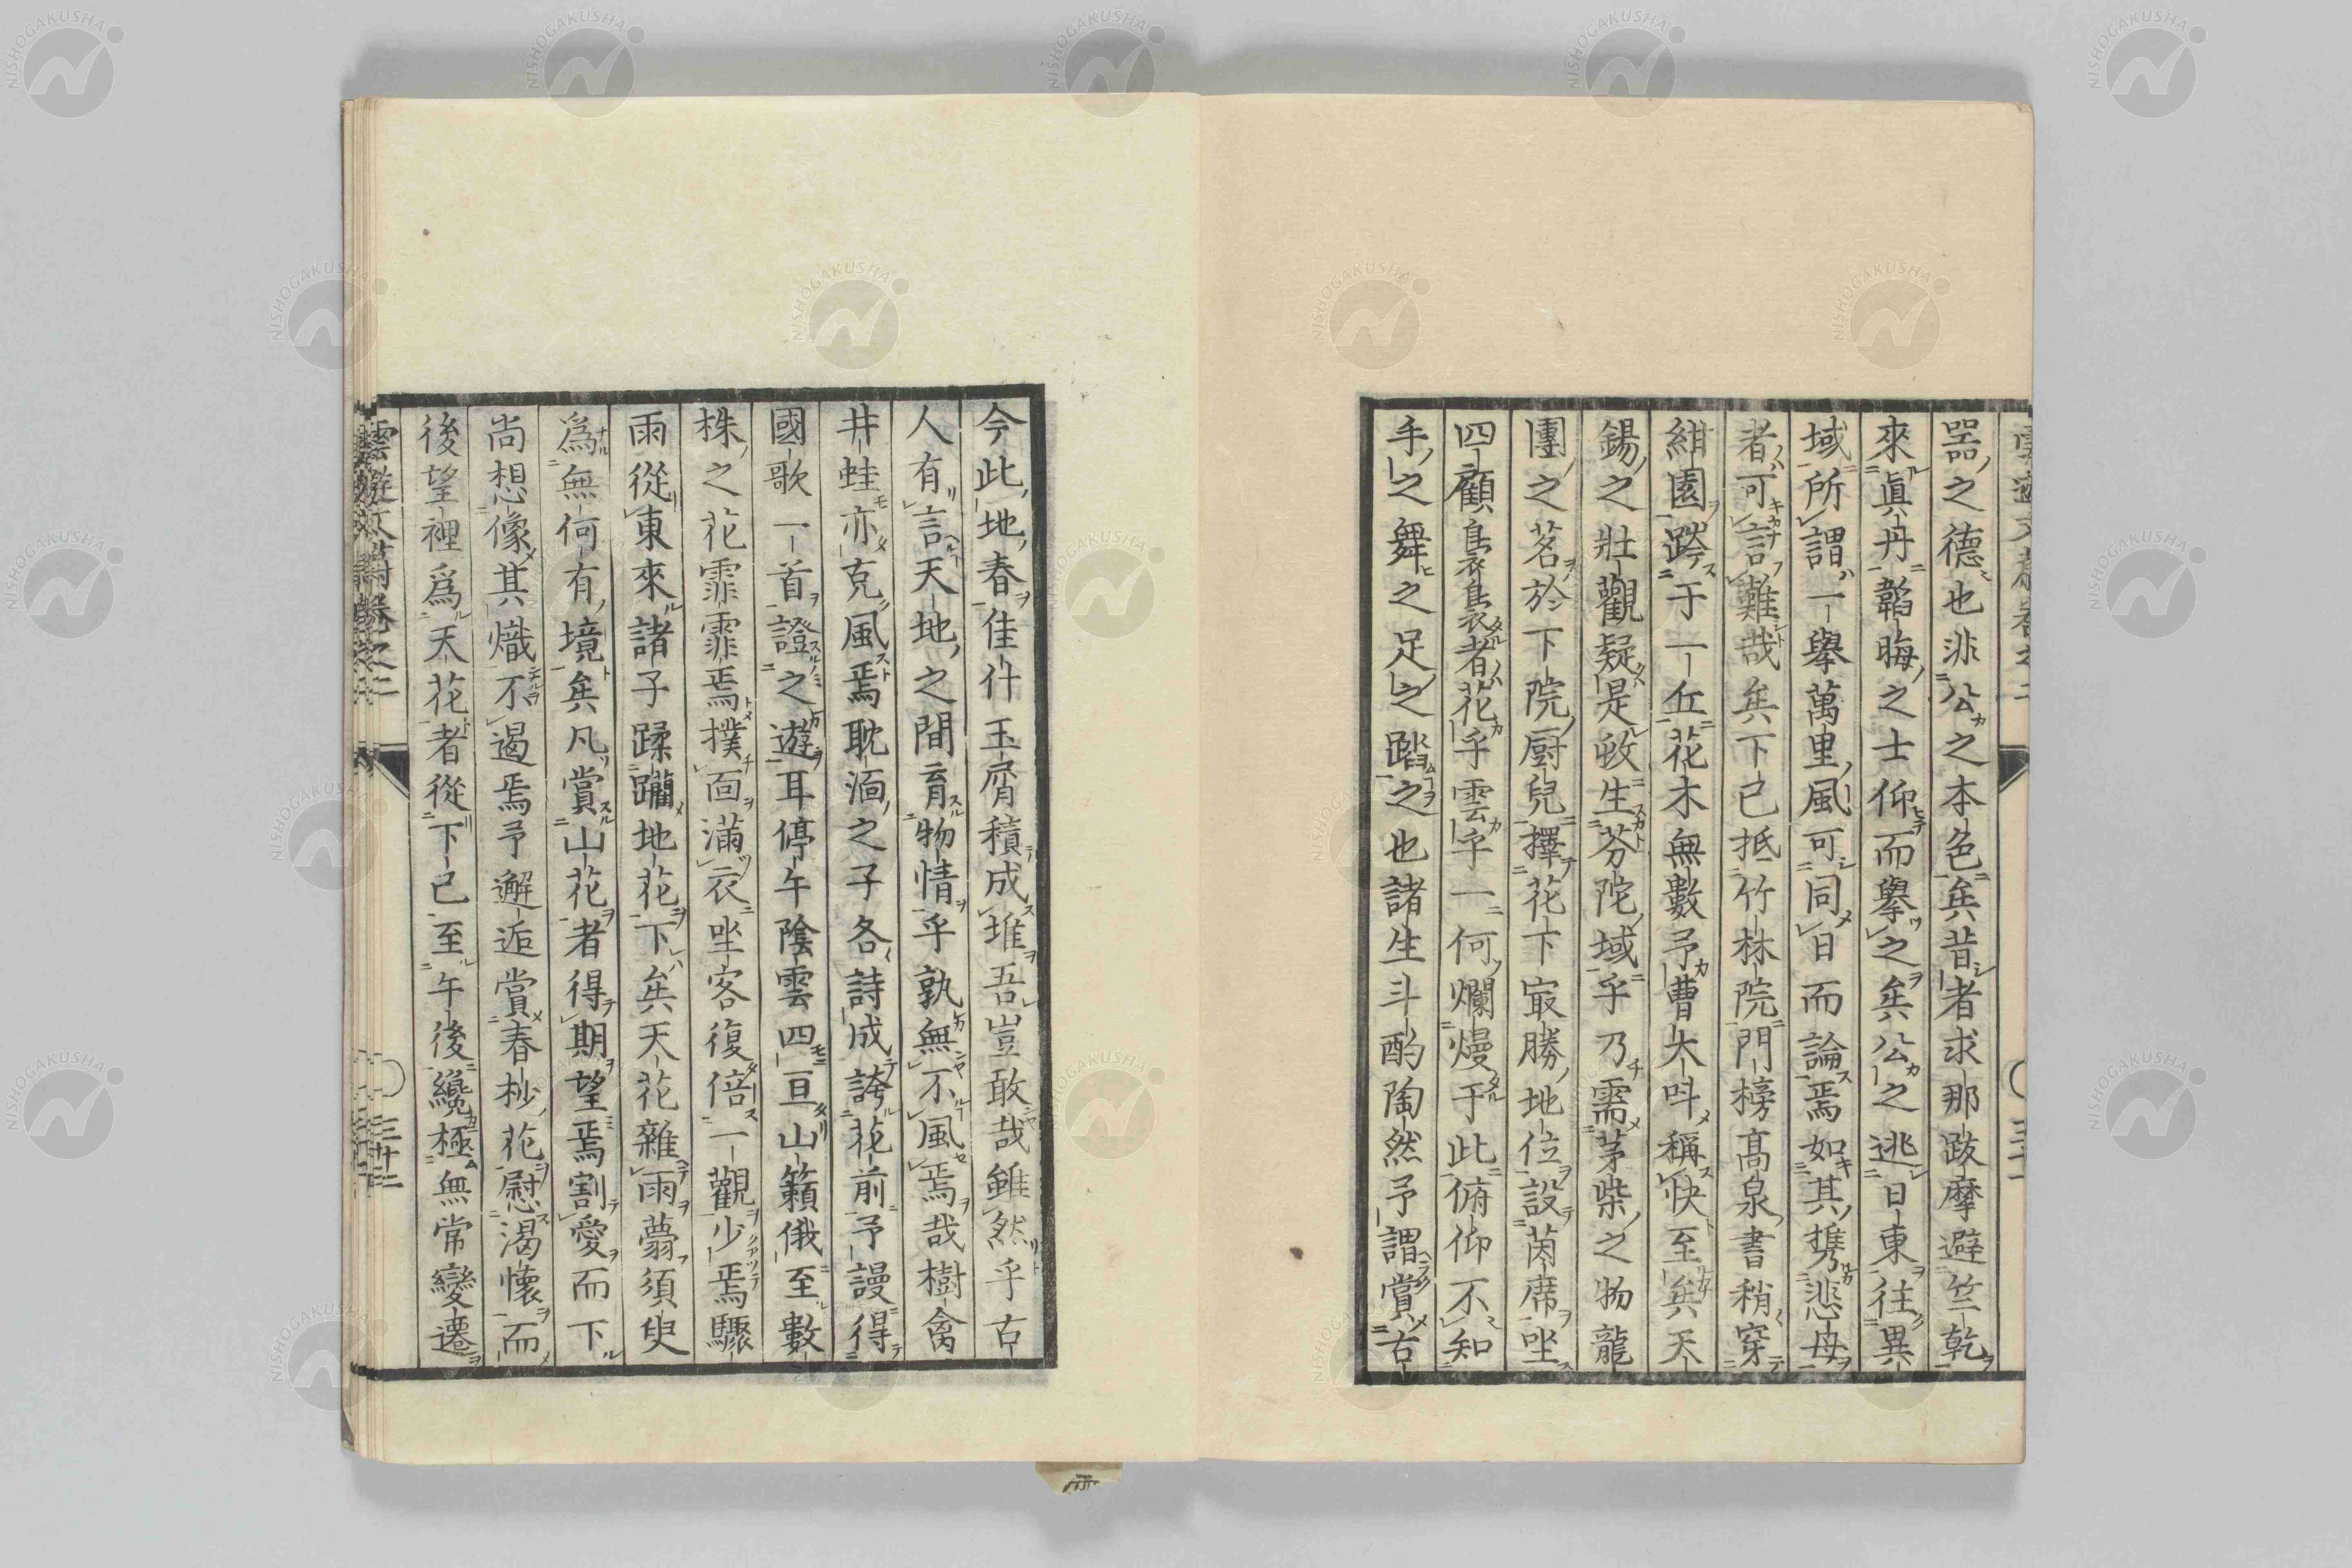 噐之德也非公之本色矣昔者求那跋摩避竺乾
來真丹韜晦之士仰而擧之矣公之逃日東往異
域所謂一擧萬里風可同日而論焉如其攜悲母
者可言難哉矣下已抵竹林院門榜高泉書稍穿
紺園跨于一丘花木無數予曹大呌稱快至矣天
錫之壯觀疑是攸生芬陀域乎乃需茅柴之物龍
團之茗於下院厨兒擇花下㝡勝地位設茵席坐
四顧裊裊者花乎雲乎一何爛熳于此俯仰不知
手之舞之足之蹈之也諸生斗酌陶然予謂賞古
今此地春佳什玉屑積成堆吾豈敢哉雖然乎古
人有言天地之間育物情乎孰無不風焉哉樹禽
井蛙亦克風焉耽湎之子各詩成誇花前予謾得
國歌一首證之遊耳停午陰雲四亘山籟俄至數
株之花霏霏焉撲面滿衣坐客復倍一觀少焉驟
雨從東來諸子蹂躪地花下矣天花雜雨薵須臾
爲無何有境矣凡賞山花者得期望焉割愛而下
尚想像其熾不遏焉予邂逅賞春杪花慰渴懷而
後望裡爲天花者從下已至午後纔極無常變遷
卷之二
三十二
NISHOGAKUSHA